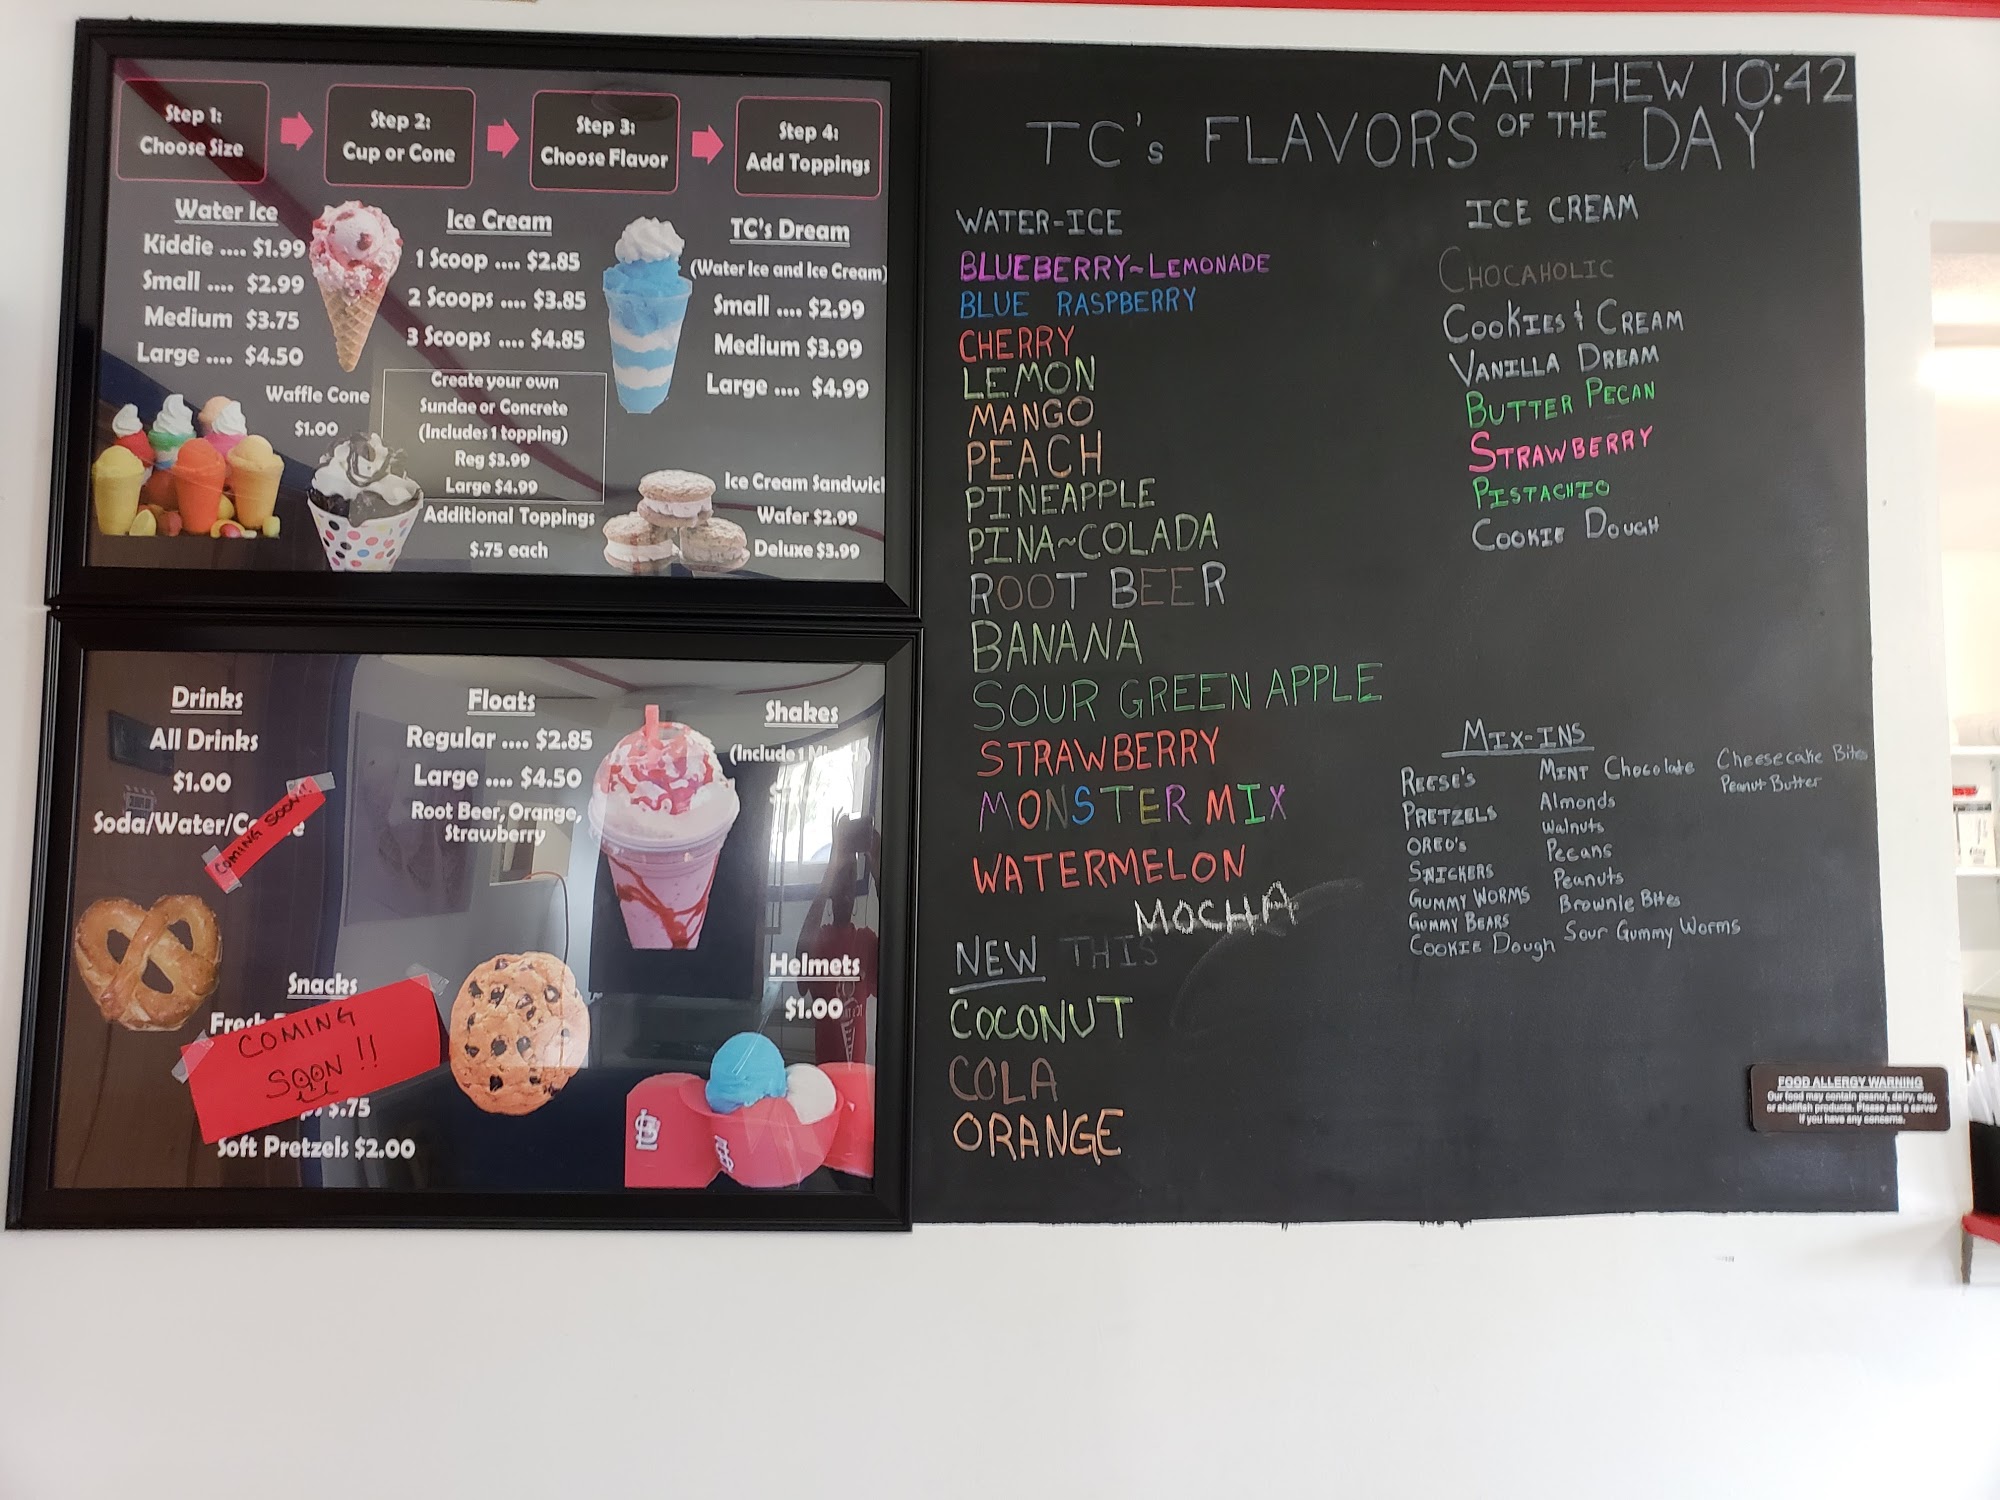 Step 1:
Choose Size
Step 2:
Cup or Cone
Step 3:
Choose Flavor
Step 4:
Add Toppings
Water Ice
Kiddie .... $1.99
Small .... $2.99
Medium $3.75
Large .... $4.50
Waffle Cone
$1.00
Ice Cream
1 Scoop .... $2.85
2 Scoops .... $3.85
3 Scoops .... $4.85
Create your own
Sundae or Concrete
(Includes 1 topping)
Reg $3.99
Large $4.99
Additional Toppings
$.75 each
TC's Dream
(Water Ice and Ice Cream)
Small .... $2.99
Medium $3.99
Large .... $4.99
Ice Cream Sandwich
Wafer $2.99
Deluxe $3.99
Drinks
All Drinks
$1.00
Soda/Water/
COMING SOON!!
Floats
Regular .... $2.85
Large .... $4.50
Root Beer, Orange,
Strawberry
Shakes
(Include 1
Snacks
Fresh
COMING
SOON !!
$.75
Soft Pretzels $2.00
Helmets
$1.00
MATTHEW 10:42
TC's FLAVORS OF THE DAY
WATER-ICE
BLUEBERRY~LEMONADE
BLUE RASPBERRY
CHERRY
LEMON
MANGO
PEACH
PINEAPPLE
PINA~COLADA
ROOT BEER
BANANA
SOUR GREEN APPLE
STRAWBERRY
MONSTER MIX
WATERMELON
MOCHA
NEW THIS
COCONUT
COLA
ORANGE
ICE CREAM
CHOCAHOLIC
COOKIES & CREAM
VANILLA DREAM
BUTTER PECAN
STRAWBERRY
PISTACHIO
COOKIE DOUGH
MIX-INS
REESE'S
PRETZELS
OREO'S
SNICKERS
GUMMY WORMS
GUMMY BEARS
COOKIE DOUGH
MINT Chocolate
Almonds
Walnuts
Pecans
Peanuts
Brownie Bites
Sour Gummy Worms
Cheesecake Bites
Peanut Butter
FOOD ALLERGY WARNING
Our food may contain peanut, dairy, egg,
or shellfish products. Please ask a server
if you have any concerns.